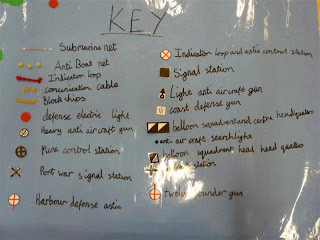 KEY
Submarine net
Anti Boat net
Indicator loop
comunication cable
Block ships
defense electric light
Heavy anti aircraft gun
Mine control station
Port war signal station
Harbour defense astic
Indicator loop and astic control station
Signal station
Light anti aircraft gun
coast defense gun
balloon squadrent and centre headquaters
anti air craft searchlight
balloon squadrent head head quaters
station
Twelve pounder gun